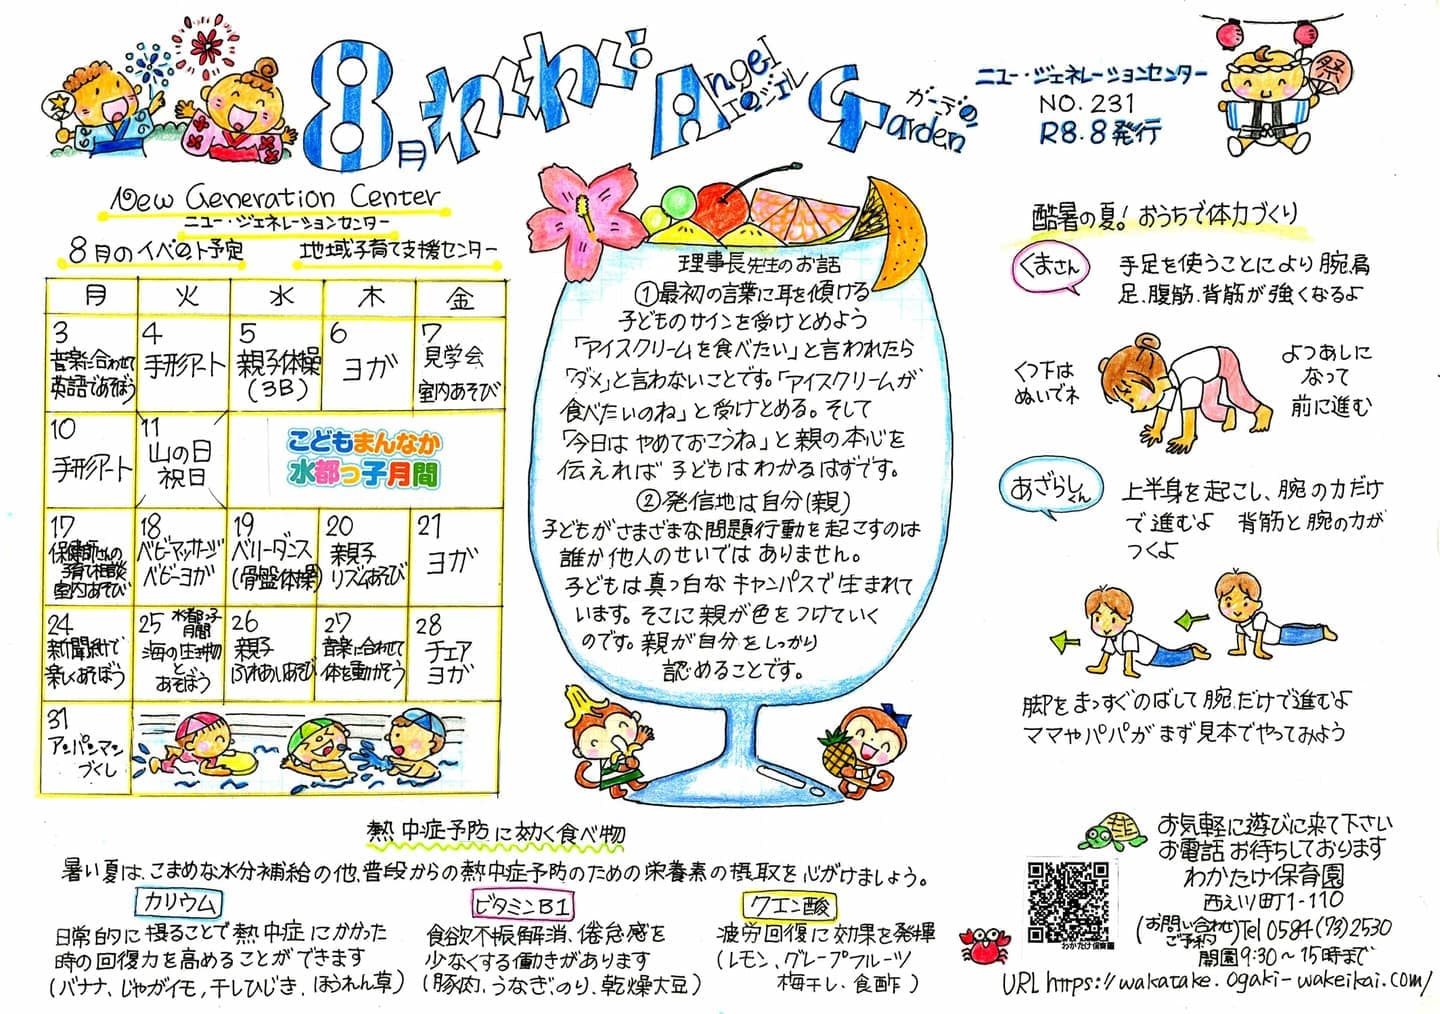 8月わくわく Angel Garden
エンジェル ガーデン
ニュー・ジェネレーションセンター
NO.231
R8.8発行
祭
New Generation Center
ニュー・ジェネレーションセンター
8月のイベント予定 地域子育て支援センター
月 火 水 木 金
3
音楽に合わせて
英語であそぼう
4
手形アート
5
親子体操
(3B)
6
ヨガ
7
見学会
室内あそび
10
手形アート
11
山の日
祝日
こどもまんなか
水都っ子月間
17
保健師さんの
子育て相談
室内あそび
18
ベビーマッサージ
ベビーヨガ
19
ベリーダンス
(骨盤体操)
20
親子
リズムあそび
21
ヨガ
24
新聞紙で
楽しくあそぼう
25 水都っ子
月間
海の生き物
と
あそぼう
26
親子
ふれあいあそび
27
音楽に合わせて
体を動かそう
28
チェア
ヨガ
31
アンパンマン
づくし
理事長先生のお話
①最初の言葉に耳を傾ける
子どものサインを受けとめよう
「アイスクリームを食べたい」と言われたら
「ダメ」と言わないことです。「アイスクリームが
食べたいのね」と受けとめる。そして
「今日は やめておこうね」と親の本心を
伝えれば 子どもはわかるはずです。
②発信地は自分(親)
子どもがさまざまな問題行動を起こすのは
誰か他人のせいでは ありません。
子どもは真っ白な キャンパスで生まれて
います。そこに親が色をつけていく
のです。親が自分をしっかり
認めることです。
酷暑の夏! おうちで体力づくり
くまさん
手足を使うことにより 腕、肩
足、腹筋、背筋が強くなるよ
くつ下は
ぬいでネ
よつあしに
なって
前に進む
あざらしくん
上半身を起こし、腕の力だけ
で進むよ 背筋と腕の力が
つくよ
脚をまっすぐのばして腕だけで進むよ
ママやパパがまず見本でやってみよう
熱中症予防に効く食べ物
暑い夏は、こまめな水分補給の他、普段からの熱中症予防のための栄養素の摂取を心がけましょう。
カリウム
日常的に摂ることで熱中症にかかった
時の回復力を高めることができます
(バナナ、じゃがイモ、干しひじき、ほうれん草)
ビタミンB1
食欲不振解消、倦怠感を
少なくする働きがあります
(豚肉、うなぎ、のり、乾燥大豆)
クエン酸
疲労回復に効果を発揮
(レモン、グレープフルーツ
梅干し、食酢)
お気軽に遊びに来て下さい
お電話お待ちしております
わかたけ保育園
西之川町1-110
(お問い合わせ
ご予約)Tel 0584(73)2530
開園9:30~15時まで
わかたけ保育園
URL https://wakatake.ogaki-wakeikai.com/